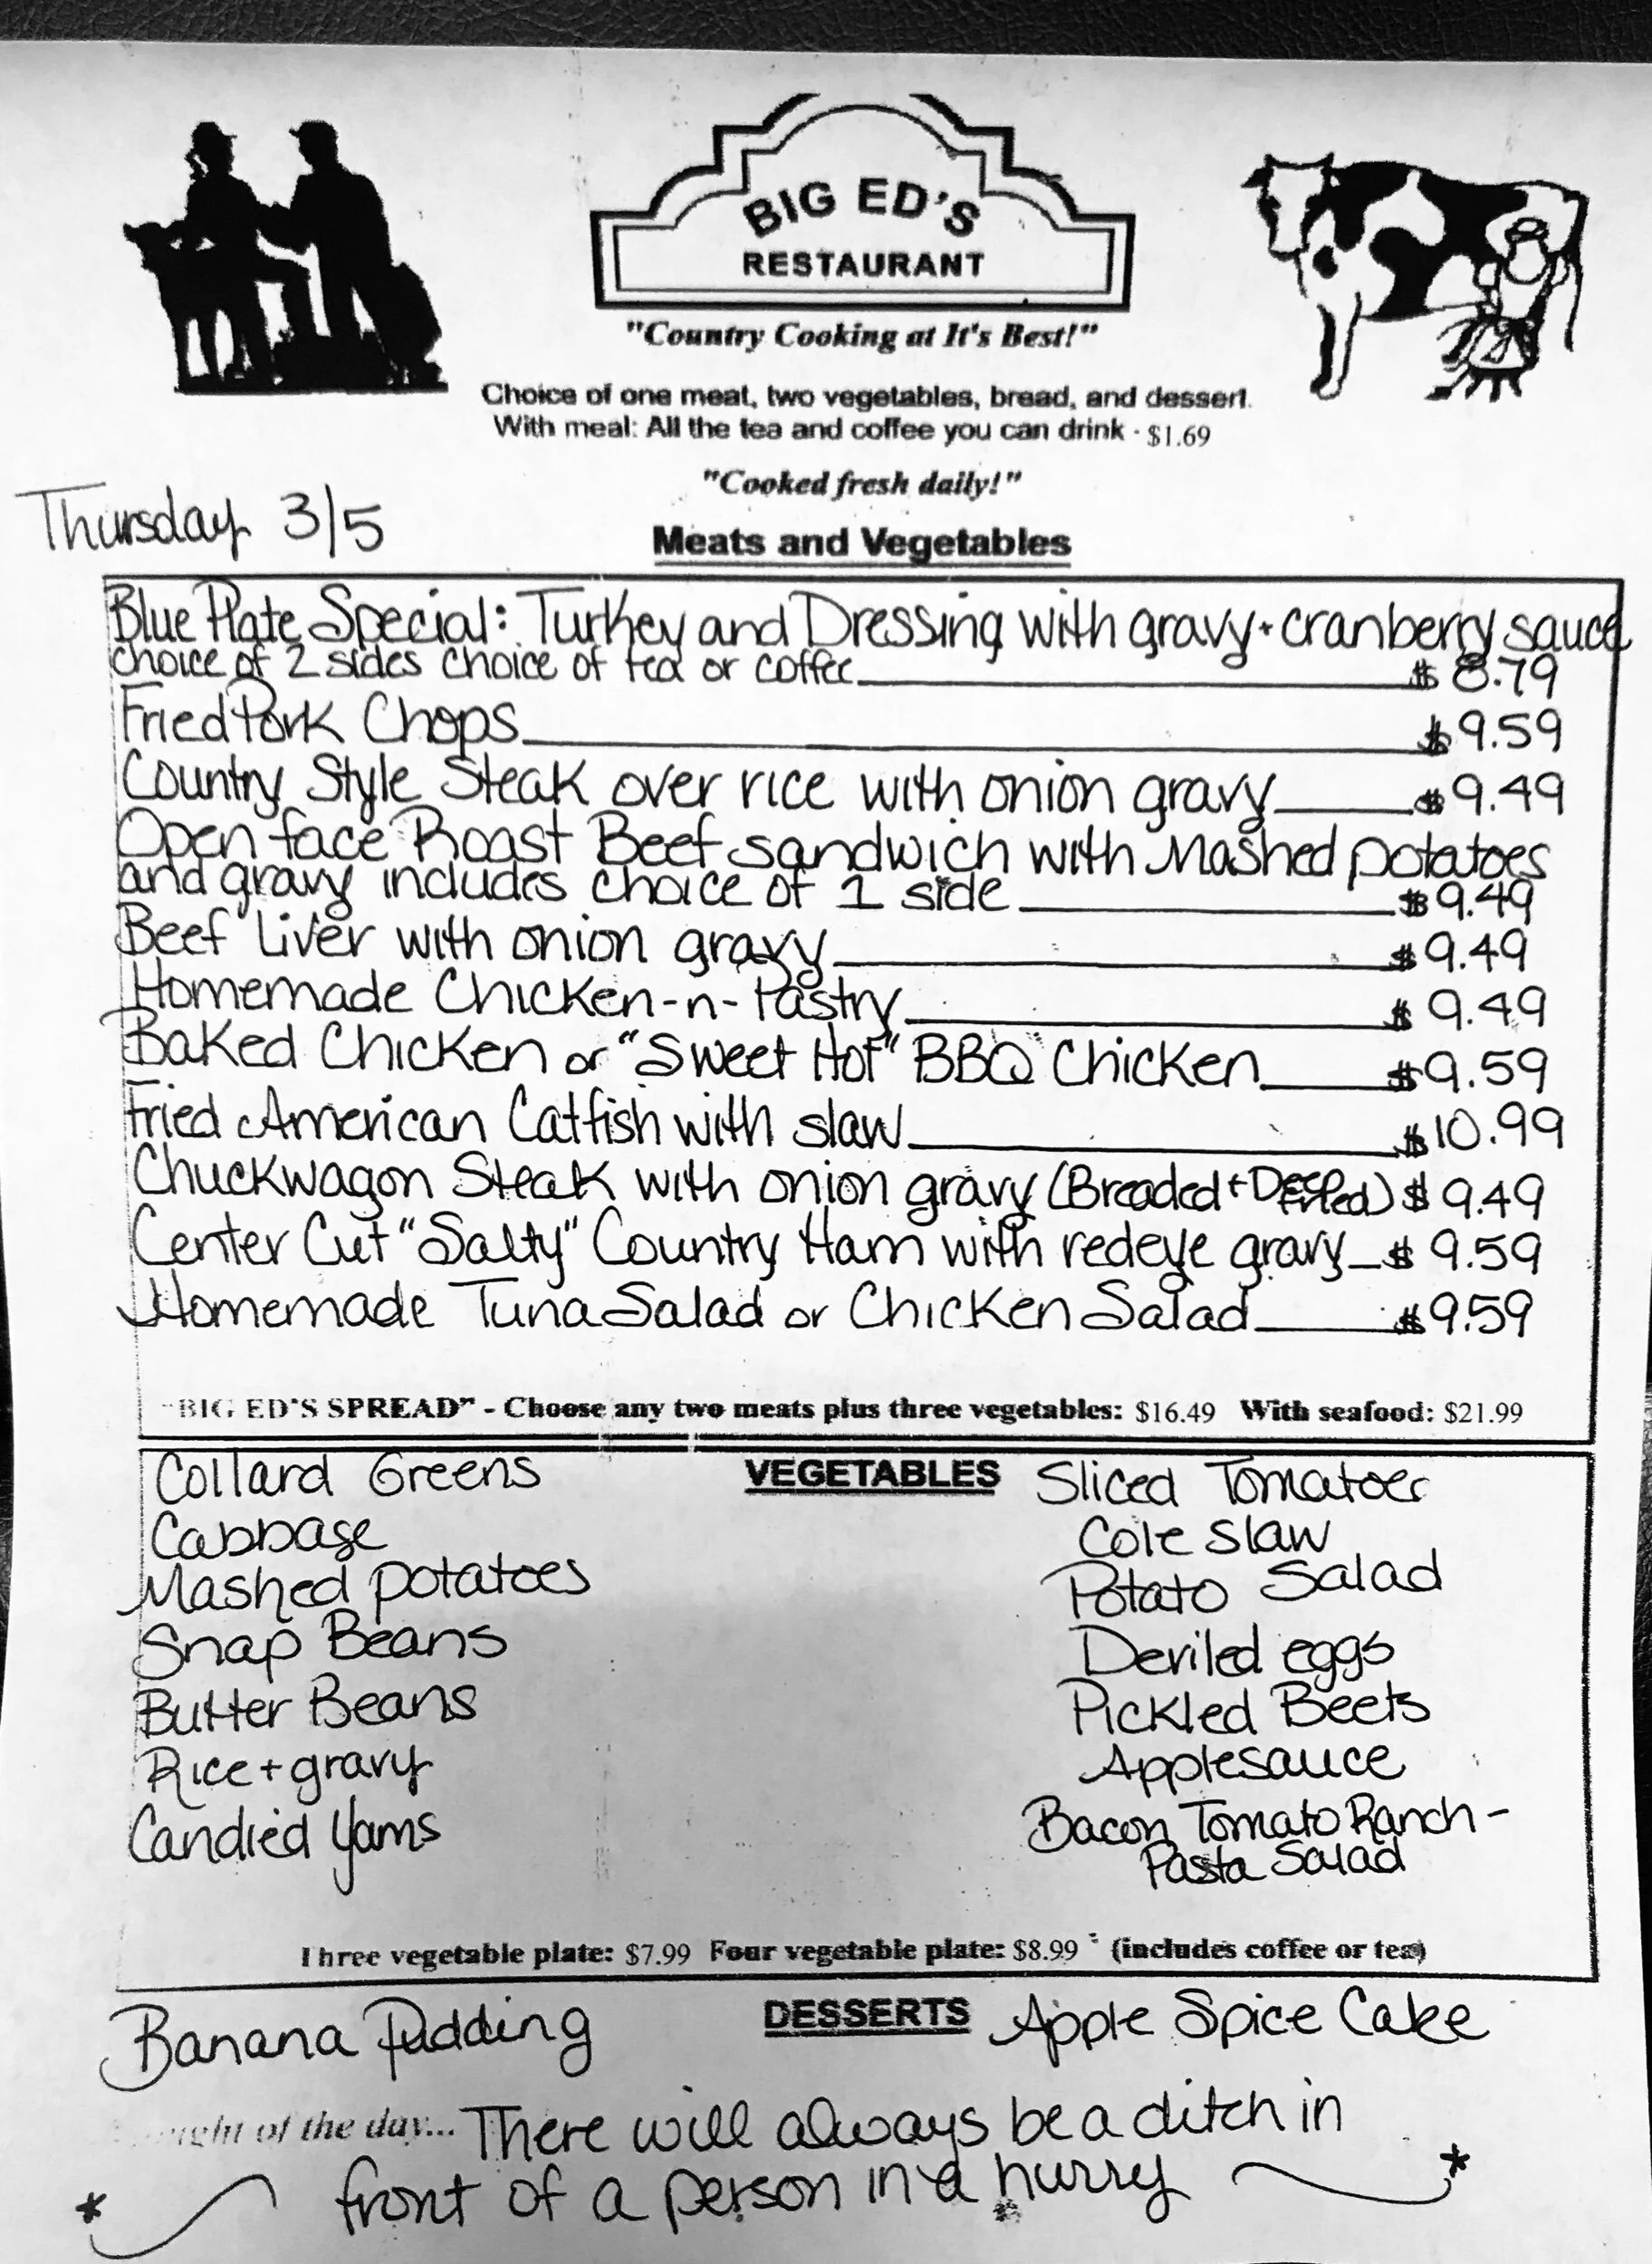 BIG ED'S
RESTAURANT
"Country Cooking at It's Best!"
Choice of one meat, two vegetables, bread, and dessert.
With meal: All the tea and coffee you can drink - $1.69
"Cooked fresh daily!"
Thursday 3/5
Meats and Vegetables
Blue Plate Special: Turkey and Dressing with gravy + cranberry sauce
choice of 2 sides choice of tea or coffee $8.79
Fried Pork Chops $9.59
Country Style Steak over rice with onion gravy $9.49
Open face Roast Beef sandwich with Mashed potatoes
and gravy includes choice of 1 side $9.49
Beef Liver with onion gravy $9.49
Homemade Chicken-n-Pastry $9.49
Baked Chicken or "Sweet Hot" BBQ Chicken $9.59
Fried American Catfish with slaw $10.99
Chuckwagon Steak with onion gravy (Breaded + Deep Fried) $9.49
Center Cut "Salty" Country Ham with redeye gravy $9.59
Homemade Tuna Salad or Chicken Salad $9.59
"BIG ED'S SPREAD" - Choose any two meats plus three vegetables: $16.49 With seafood: $21.99
VEGETABLES
Collard Greens
Cabbage
Mashed potatoes
Snap Beans
Butter Beans
Rice + gravy
Candied Yams
Sliced Tomatoes
Cole slaw
Potato Salad
Deviled eggs
Pickled Beets
Applesauce
Bacon Tomato Ranch -
Pasta Salad
Three vegetable plate: $7.99 Four vegetable plate: $8.99 (includes coffee or tea)
DESSERTS
Banana Pudding
Apple Spice Cake
of the day... There will always be a ditch in
front of a person in a hurry